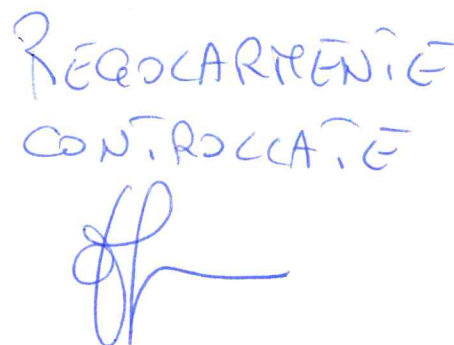 REGOLARMENTE
CONTROLLATE